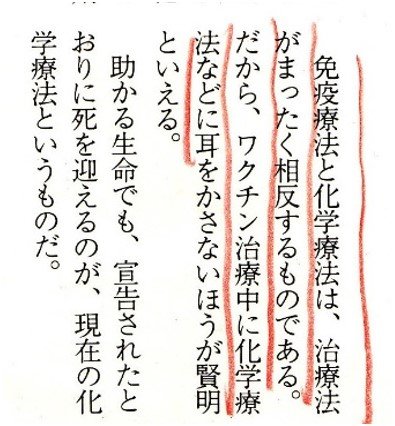 免疫療法と化学療法は、治療法
がまったく相反するものである。
だから、ワクチン治療中に化学療
法などに耳をかさないほうが賢明
といえる。
助かる生命でも、宣告されたと
おりに死を迎えるのが、現在の化
学療法というものだ。